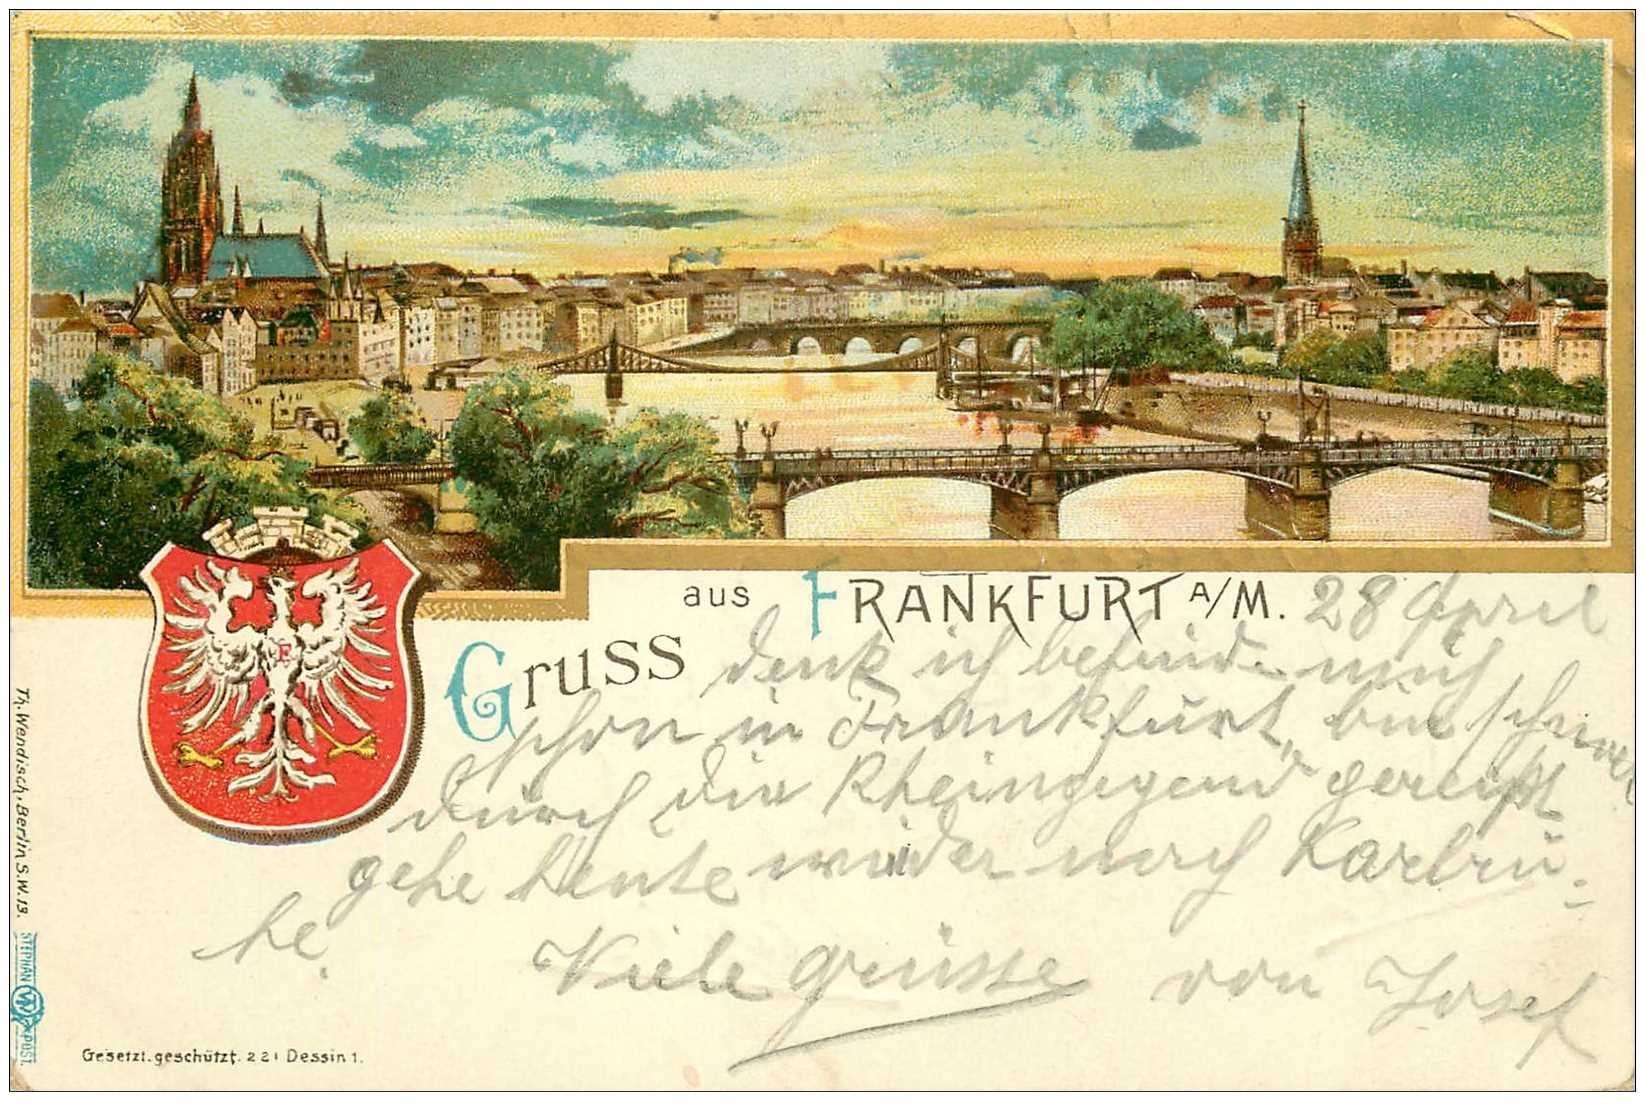 aus FRANKFURT A/M.
Gruss
28 April
denk ich befinde mich
schon in Frankfurt, bin schon
durch die Rheingegend gereist
gehe heute wieder nach Karlsru-
he.
Viele grüsse von Josef
F
Th. Wendisch, Berlin S.W.13.
STEPHAN W POST.
Gesetzl. geschützt. 221 Dessin 1.